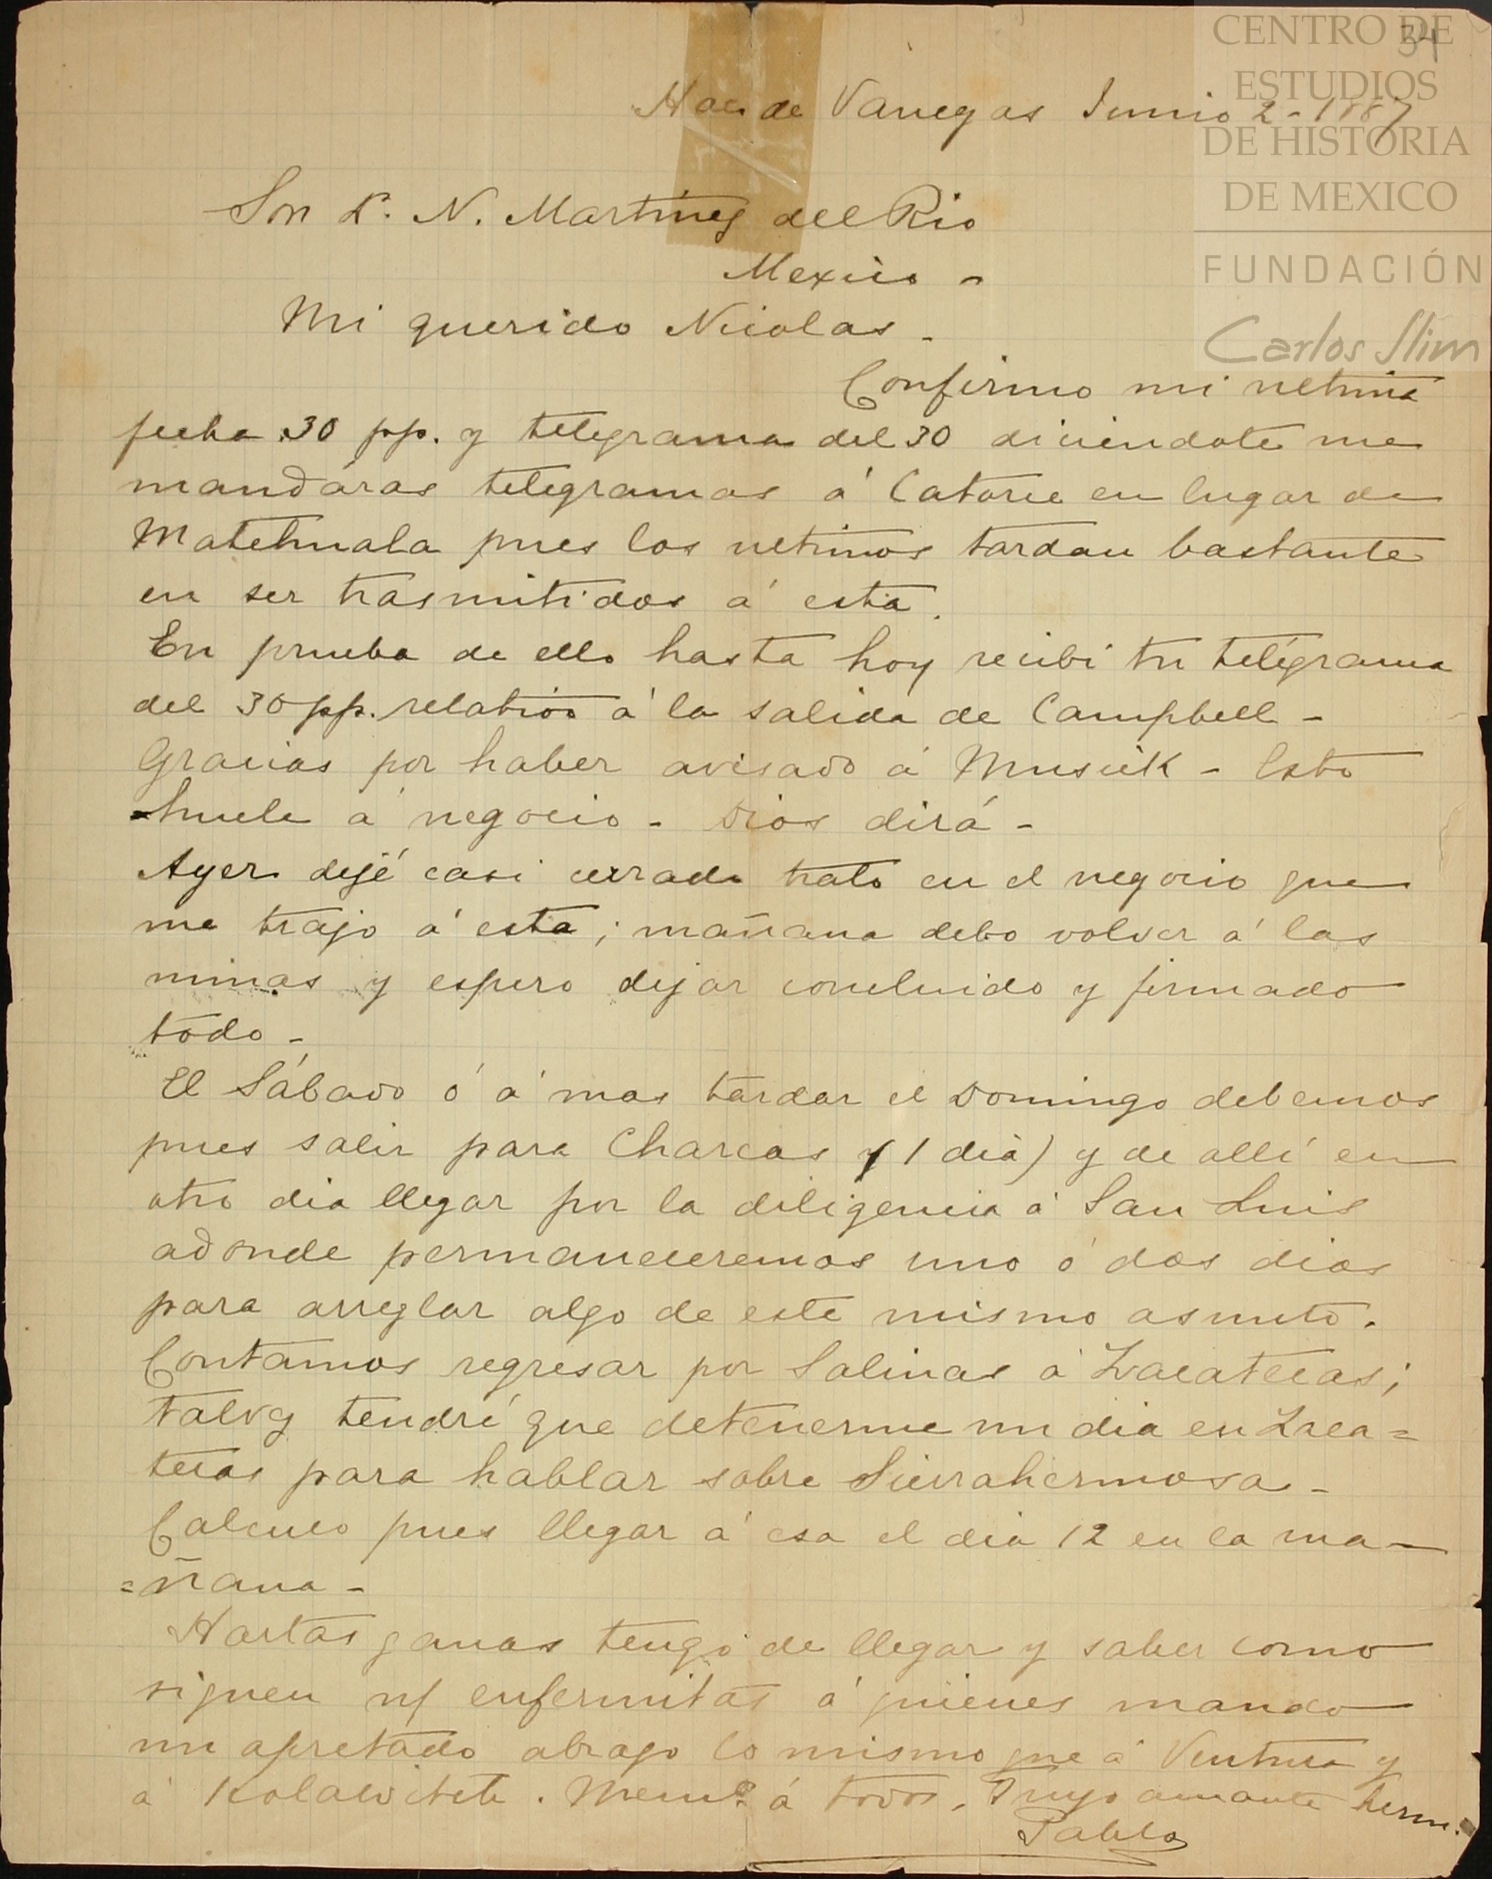 CENTRO DE
ESTUDIOS
DE HISTORIA
DE MEXICO
FUNDACIÓN
Carlos Slim
34
Hac. de Vanegas Junio 2-1887
Sor D. N. Martinez del Rio
Mexico -
Mi querido Nicolas -
Confirmo mi ultima
fecha 30 pp. y telegrama del 30 diciendote me
mandáras telegramas á Catorce en lugar de
Matehuala pues los ultimos tardan bastante
en ser trasmitidos á esta.
En prueba de ello hasta hoy recibi tu telégrama
del 30 pp. relativo á la salida de Campbell -
Gracias por haber avisado á Musick - Esto
huele á negocio - Dios dirá -
Ayer dejé casi cerrado trato en el negocio que
me trajo á esta; mañana debo volver á las
minas y espero dejar concluido y firmado
todo -
El Sábado ó á mas tardar el Domingo debemos
pues salir para Charcas (1 dia) y de allí en
otro dia llegar por la diligencia á San Luis
adonde permaneceremos uno ó dos dias
para arreglar algo de este mismo asunto.
Contamos regresar por Salinas á Zacatecas;
talvez tendré que detenerme un dia en Zaca=
tecas para hablar sobre Sierrahermosa -
Calculo pues llegar á esa el dia 12 en la ma-
=ñana -
Hartas ganas tengo de llegar y saber como
siguen nS enfermitas á quienes mando
un apretado abrazo lo mismo que á Ventura y
á . Mems á todos. Tuyo amante herm.
Pablo